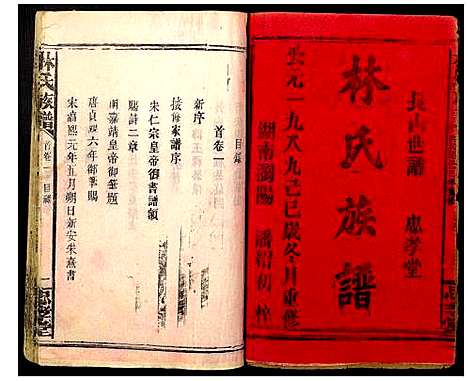 長山世譜 忠孝堂
林氏族譜
公元一九八九己巳歲冬月重修
湖南瀏陽
林氏族譜 首卷一 目錄 一
目錄
首卷一
新序
接脩家譜序
朱仁宗皇帝御書譜額
賜詩二章
明嘉靖皇帝御筆題
唐貞觀六年御筆賜
宋淳熙元年五月朔日新安朱熹書